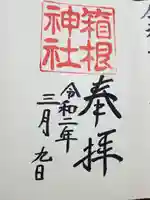 奉拝
箱根
神社
令和二年
三月九日